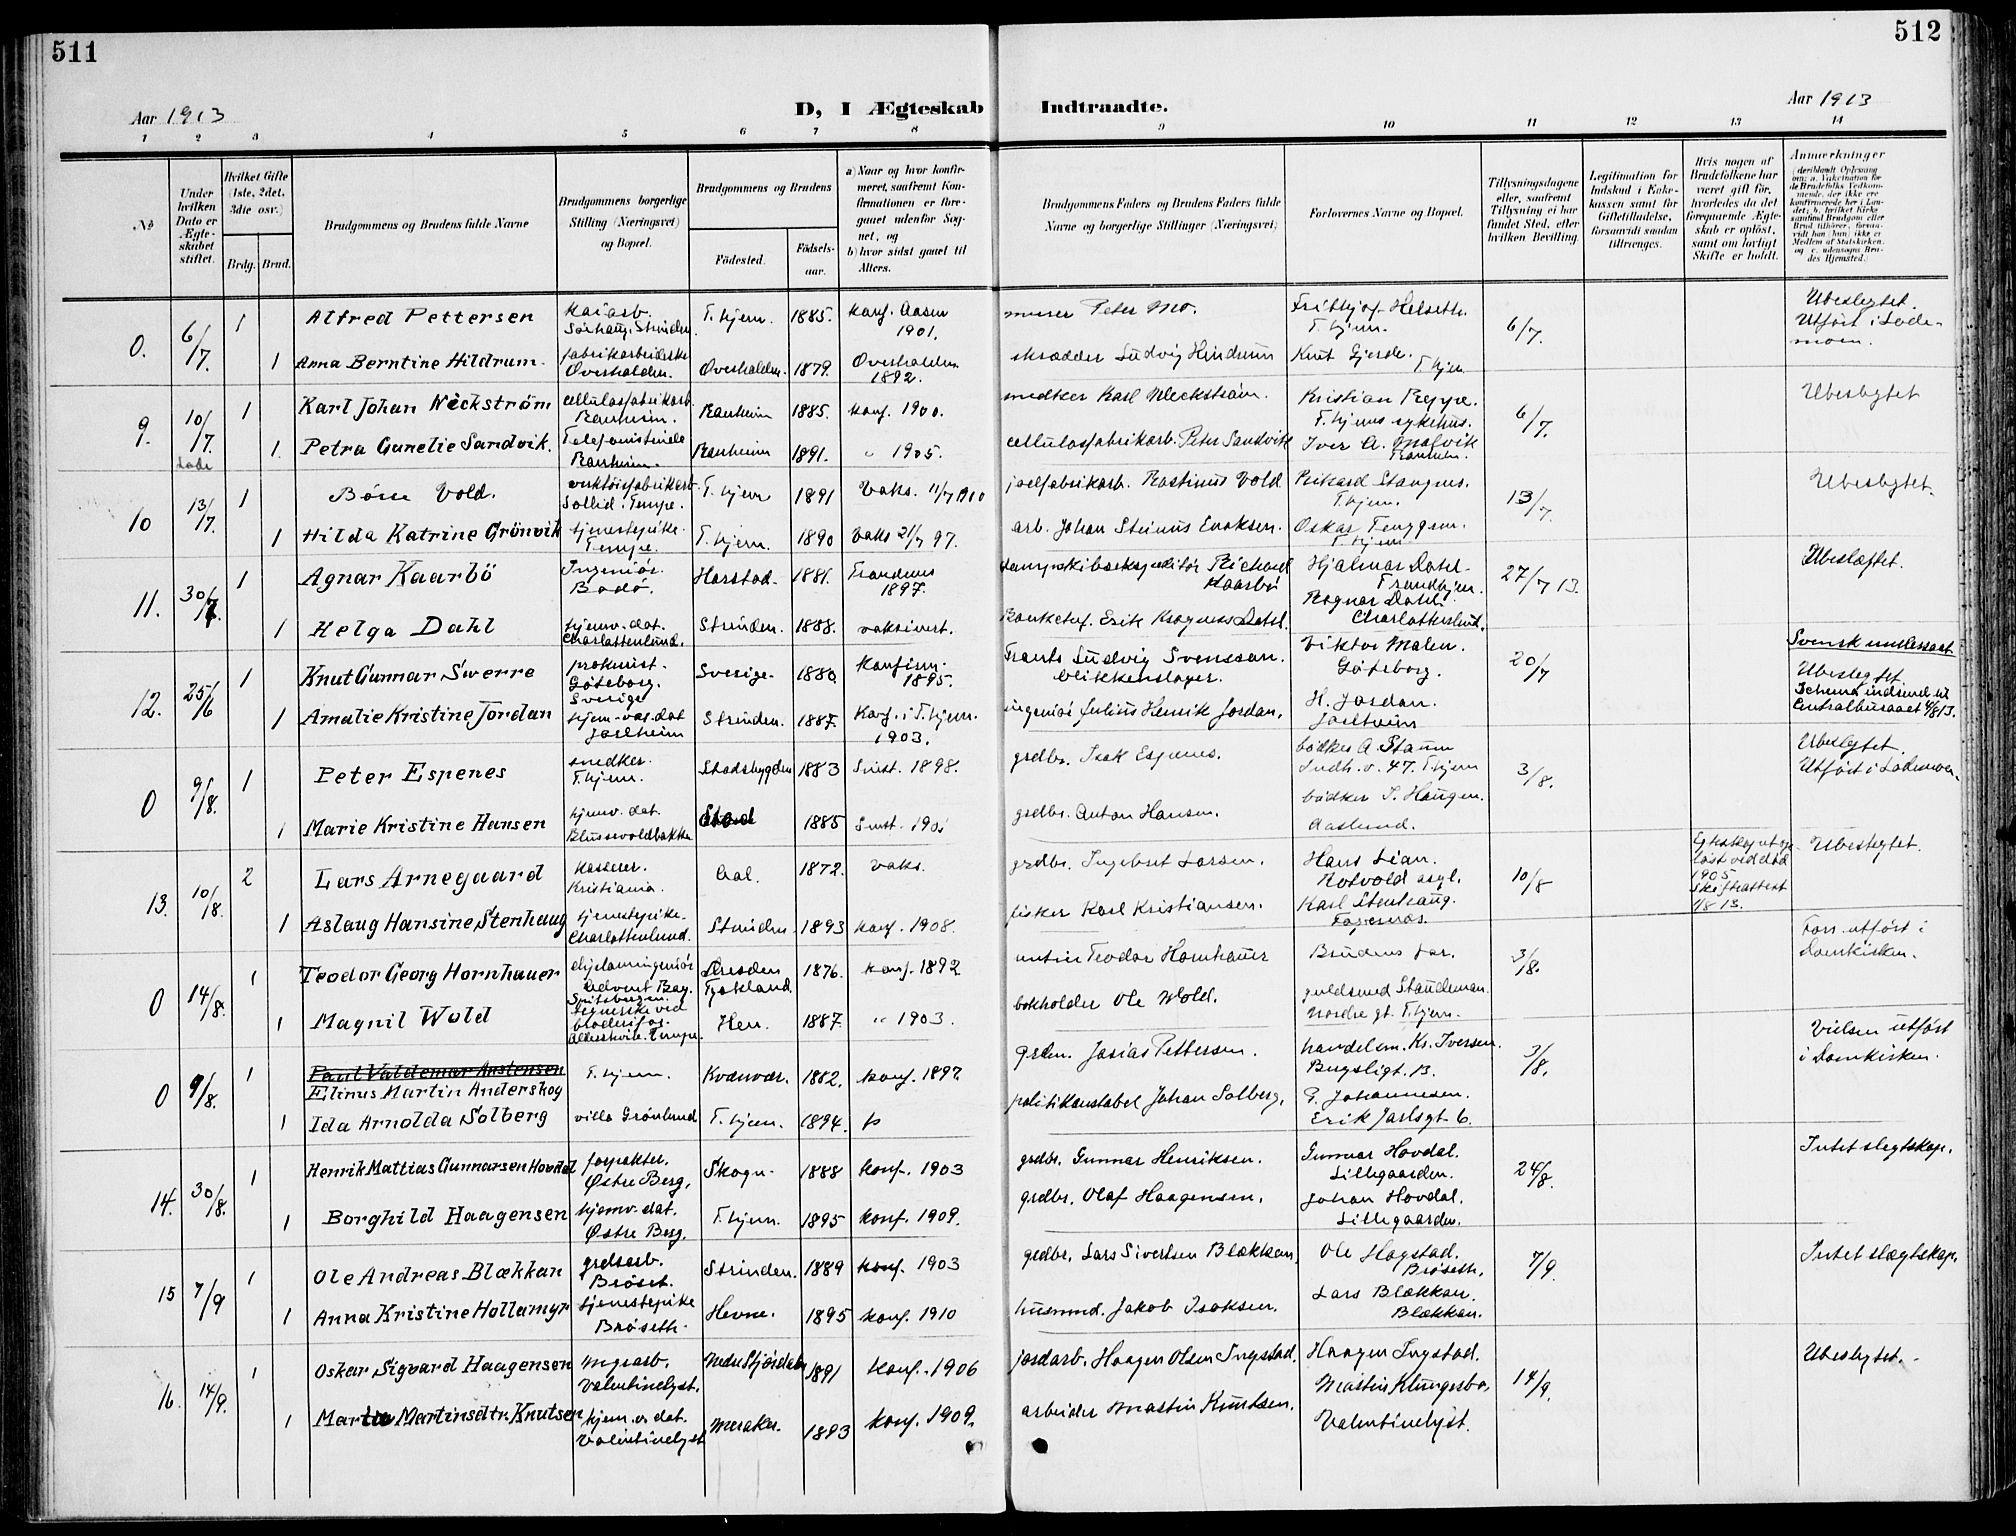 511
512
Aar 1913
D, I Ægteskab Indtraadte.
Aar 1913
1 2 3 4 5 6 7 8 9 10 11 12 13 14
No
Under hvilken Dato er Ægteskabet stiftet.
Hvilket Gifte (1ste, 2det, 3die osv.)
Brdg. Brud.
Brudgommens og Brudens fulde Navne
Brudgommens borgerlige Stilling (Næringsvei) og Bopæl.
Brudgommens og Brudens
Fødested.
Fødselsaar.
a) Naar og hvor konfirmeret, saafremt Konfirmationen er foregaaet udenfor Sognet, og
b) hvor sidst gaaet til Alters.
Brudgommens Faders og Brudens Faders fulde Navne og borgerlige Stillinger (Næringsvei)
Forlovernes Navne og Bopæl.
Tillysningsdagene eller, saafremt Tillysning ei har fundet Sted, efter hvilken Bevilling.
Legitimation for Indskud i Enkekassen samt for Giftetilladelse, forsaavidt saadan tiltrænges.
Hvis nogen af Brudefolkene har været gift før, hvorledes da det foregaaende Ægteskab er opløst, samt om lovligt Skifte er holdt.
Anmærkninger
0. 6/7. 1 Alfred Pettersen T.hjem. 1885. konf. Aasen 1901. murer Peter Mo. Fridtjof Helseth. T.hjem. 6/7. Ubeslegtet. Utført i Lademoen.
1 Anna Berntine Hildrum. fabrikarbeiderske Overhalden. Overhalden. 1879. Overhalden 1892. skrædder Ludvig Hindrum Knut Gjerde. T.hjem
9. 10/7. Lade 1 Karl Johan Weckström cellulosefabrikarb. Ranheim. Ranheim 1885. konf. 1900. snedker Karl Weckström. Kristian Reppe. T.hjems sykehus. 6/7. Ubeslegtet
1 Petra Gunelie Sandvik. Telefonistinde Ranheim. Ranheim 1891. " 1905. cellulosfabrikarb. Peter Sandvik Iver A. Malvik Ranheim.
10 13/7. 1 Børre Vold. verktøisfabrikarb. Sollid. Tempe. T.hjem 1891 Vaks. 11/7 1910 joelfabrikarb. Rastinus Vold Rikard Stavnes. T.hjem. 13/7. Ubeslegtet.
1 Hilda Katrine Grönvik tjenestepike. Tempe. T.hjem. 1890 Vaks 21/7 97. arb. Johan Steinus Enoksen. Oskar T.hjem
11. 30/7. 1 Agnar Kaarbö Ingeniør. Bodö. Harstad. 1881. Trondenes 1897. dampskibsekspeditör Rickard Kaarbö Hjalmar Dahl. Trondhjem. 27/7 13. Ubeslægtet.
1 Helga Dahl hjemv. dat. Charlottenlund. Strinden. 1888. vaksinert. Banksjef. Erik Dahl. Ragnar Dahl. Charlottenlund.
12. 25/6 1 Knut Gunnar Swerre prokurist. Göteborg. Sverige Sverige. 1880. Konfirm. 1895. Frants Ludvig Svensson. blikkenslager. Viktor Malm. Göteborg. 20/7 Svensk undersaat Ubeslegtet. Schema indsend til Centralbureaet 4/8 13.
1 Amalie Kristine Jordan hjem-vær. dat Jarlheim Strinden. 1887. Konf. i T.hjem. 1903. ingeniör Julius Henrik Jordan. H. Jordan. Jarlheim
0 9/8. 1 Peter Espenes snedker. T.hjem. Stadsbygden 1883 Smst. 1898. grdbr. Isak Espenes. bödker A. Staum Indh. v. 47. T.hjem 3/8. Ubeslegtet. Utført i Lademoen.
1 Marie Kristine Hansen hjemv. dat. Blussuvoldbakke 1885 Smst. 1901 grdbr. Anton Hansen. bödker I. Haugen. Aaslund.
13. 10/8. 2 Lars Arnegaard kasserer. Kristiania. Aal. 1872. Vaks. grdbr. Ingebret Larsen. Hans Lian. Rotvold asyl. 10/8 Egteskap utopløst ved död 1905 Skifteattest 1/8 13. Ubeslegtet.
1 Aslaug Hansine Stenhaug tjenestepike. Charlottenlund. Strinden 1893 konf. 1908. fisker Karl Kristiansen. Karl Stenhaug. Fagernæs.
0 14/8. 1 Teodor Georg Hornhauer Advent Bay. Spitsbergen. Dresden Tyskland. 1876. konf. 1892 Teodor Hornhauer Brudens far. 3/8. Forr. utført i Domkirken.
1 Magnil Wold Hen. 1887. " 1903. bokholder Ole Wold. guldsmed Staudeman. Nordre gt. T.hjem.
0 9/8. 1 Paul Valdemar Anstensen Elinus Martin Anderskog T.hjem. Kvænvær. 1882. konf. 1897. grdm. Josias Pettersen. handelsm. Kr. Iversen. Bugsligt. 13. 3/8. Vielsen utført i Domkirken.
1 Ida Arnolda Solberg villa Grönlund T.hjem. 1894. politikonstabel Johan Solberg. P. Johannesen. Erik Jarlsgt 6.
14. 30/8. 1 Henrik Mattias Gunnarsen Hovdal forpakter. Østre Berg. Skogn. 1888 konf. 1903 grdbr. Gunnar Henriksen. Gunnar Hovdal. Lillegaarden. 24/8. Intet slegtskap.
1 Borghild Haagensen hjemv. dat. Østre Berg. T.hjem. 1895 konf. 1909. grdbr. Olaf Haagensen. Johan Hovdal. Lillegaarden.
15 7/9 1 Ole Andreas Blækkan grdsarb. Bröset. Strinden. 1889 konf. 1903 grdbr. Lars Sivertsen Blækkan Ole Hogstad. Bröseth. 7/9. Intet slægtskap.
1 Anna Kristine Hollamyr tjenestepike Bröseth. Hevne. 1895 konf. 1910 husmnd. Jakob Isaksen. Lars Blækkan. Blækkan.
16. 14/9. 1 Oskar Sigvard Haagensen Valentinelyst. Nedre Stjördalen 1891 konf. 1906 jordarb. Haagen Olsen Ingstad. Haagen Ingstad. 14/9. Ubeslegtet.
1 Martinsdtr. Knutsen hjem.v. dat. Valentinelyst Meraker. 1893 konf. 1909. arbeider Martin Knutsen. Martin Klungerbo. Valentinelyst.